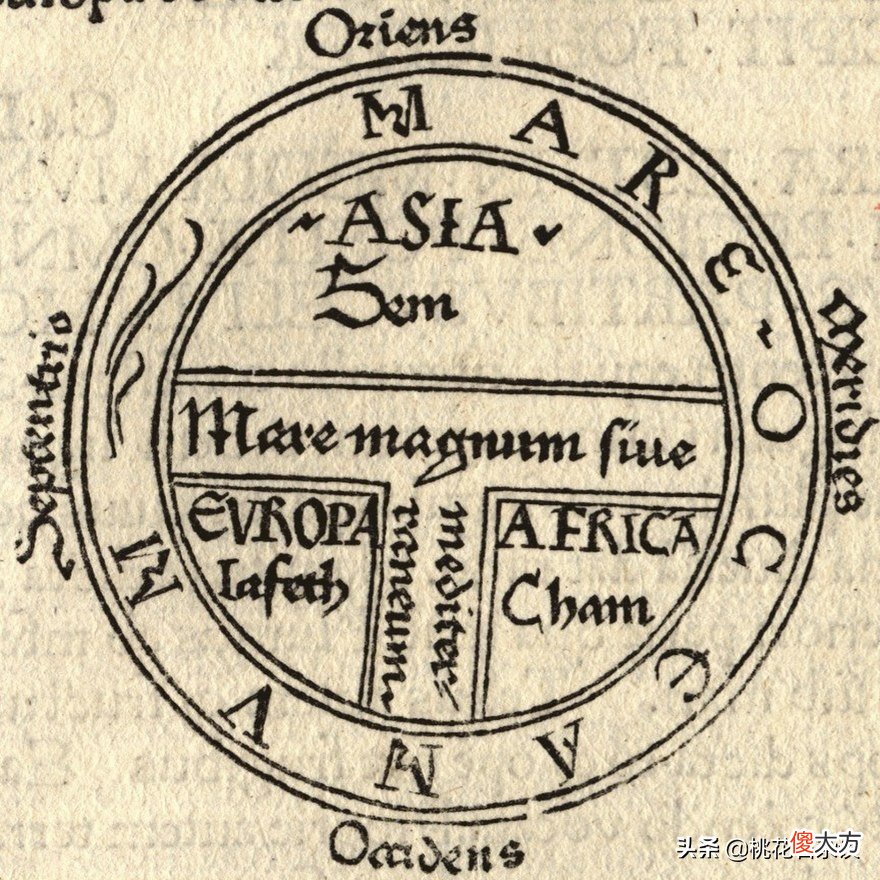 Oriens
MARE OCEANVM
ASIA
Sem
Septentrio
Meridies
Mare magnum siue
mediter
raneum
EVROPA
Iafeth
AFRICA
Cham
Occidens
头条 @桃花
傻大方